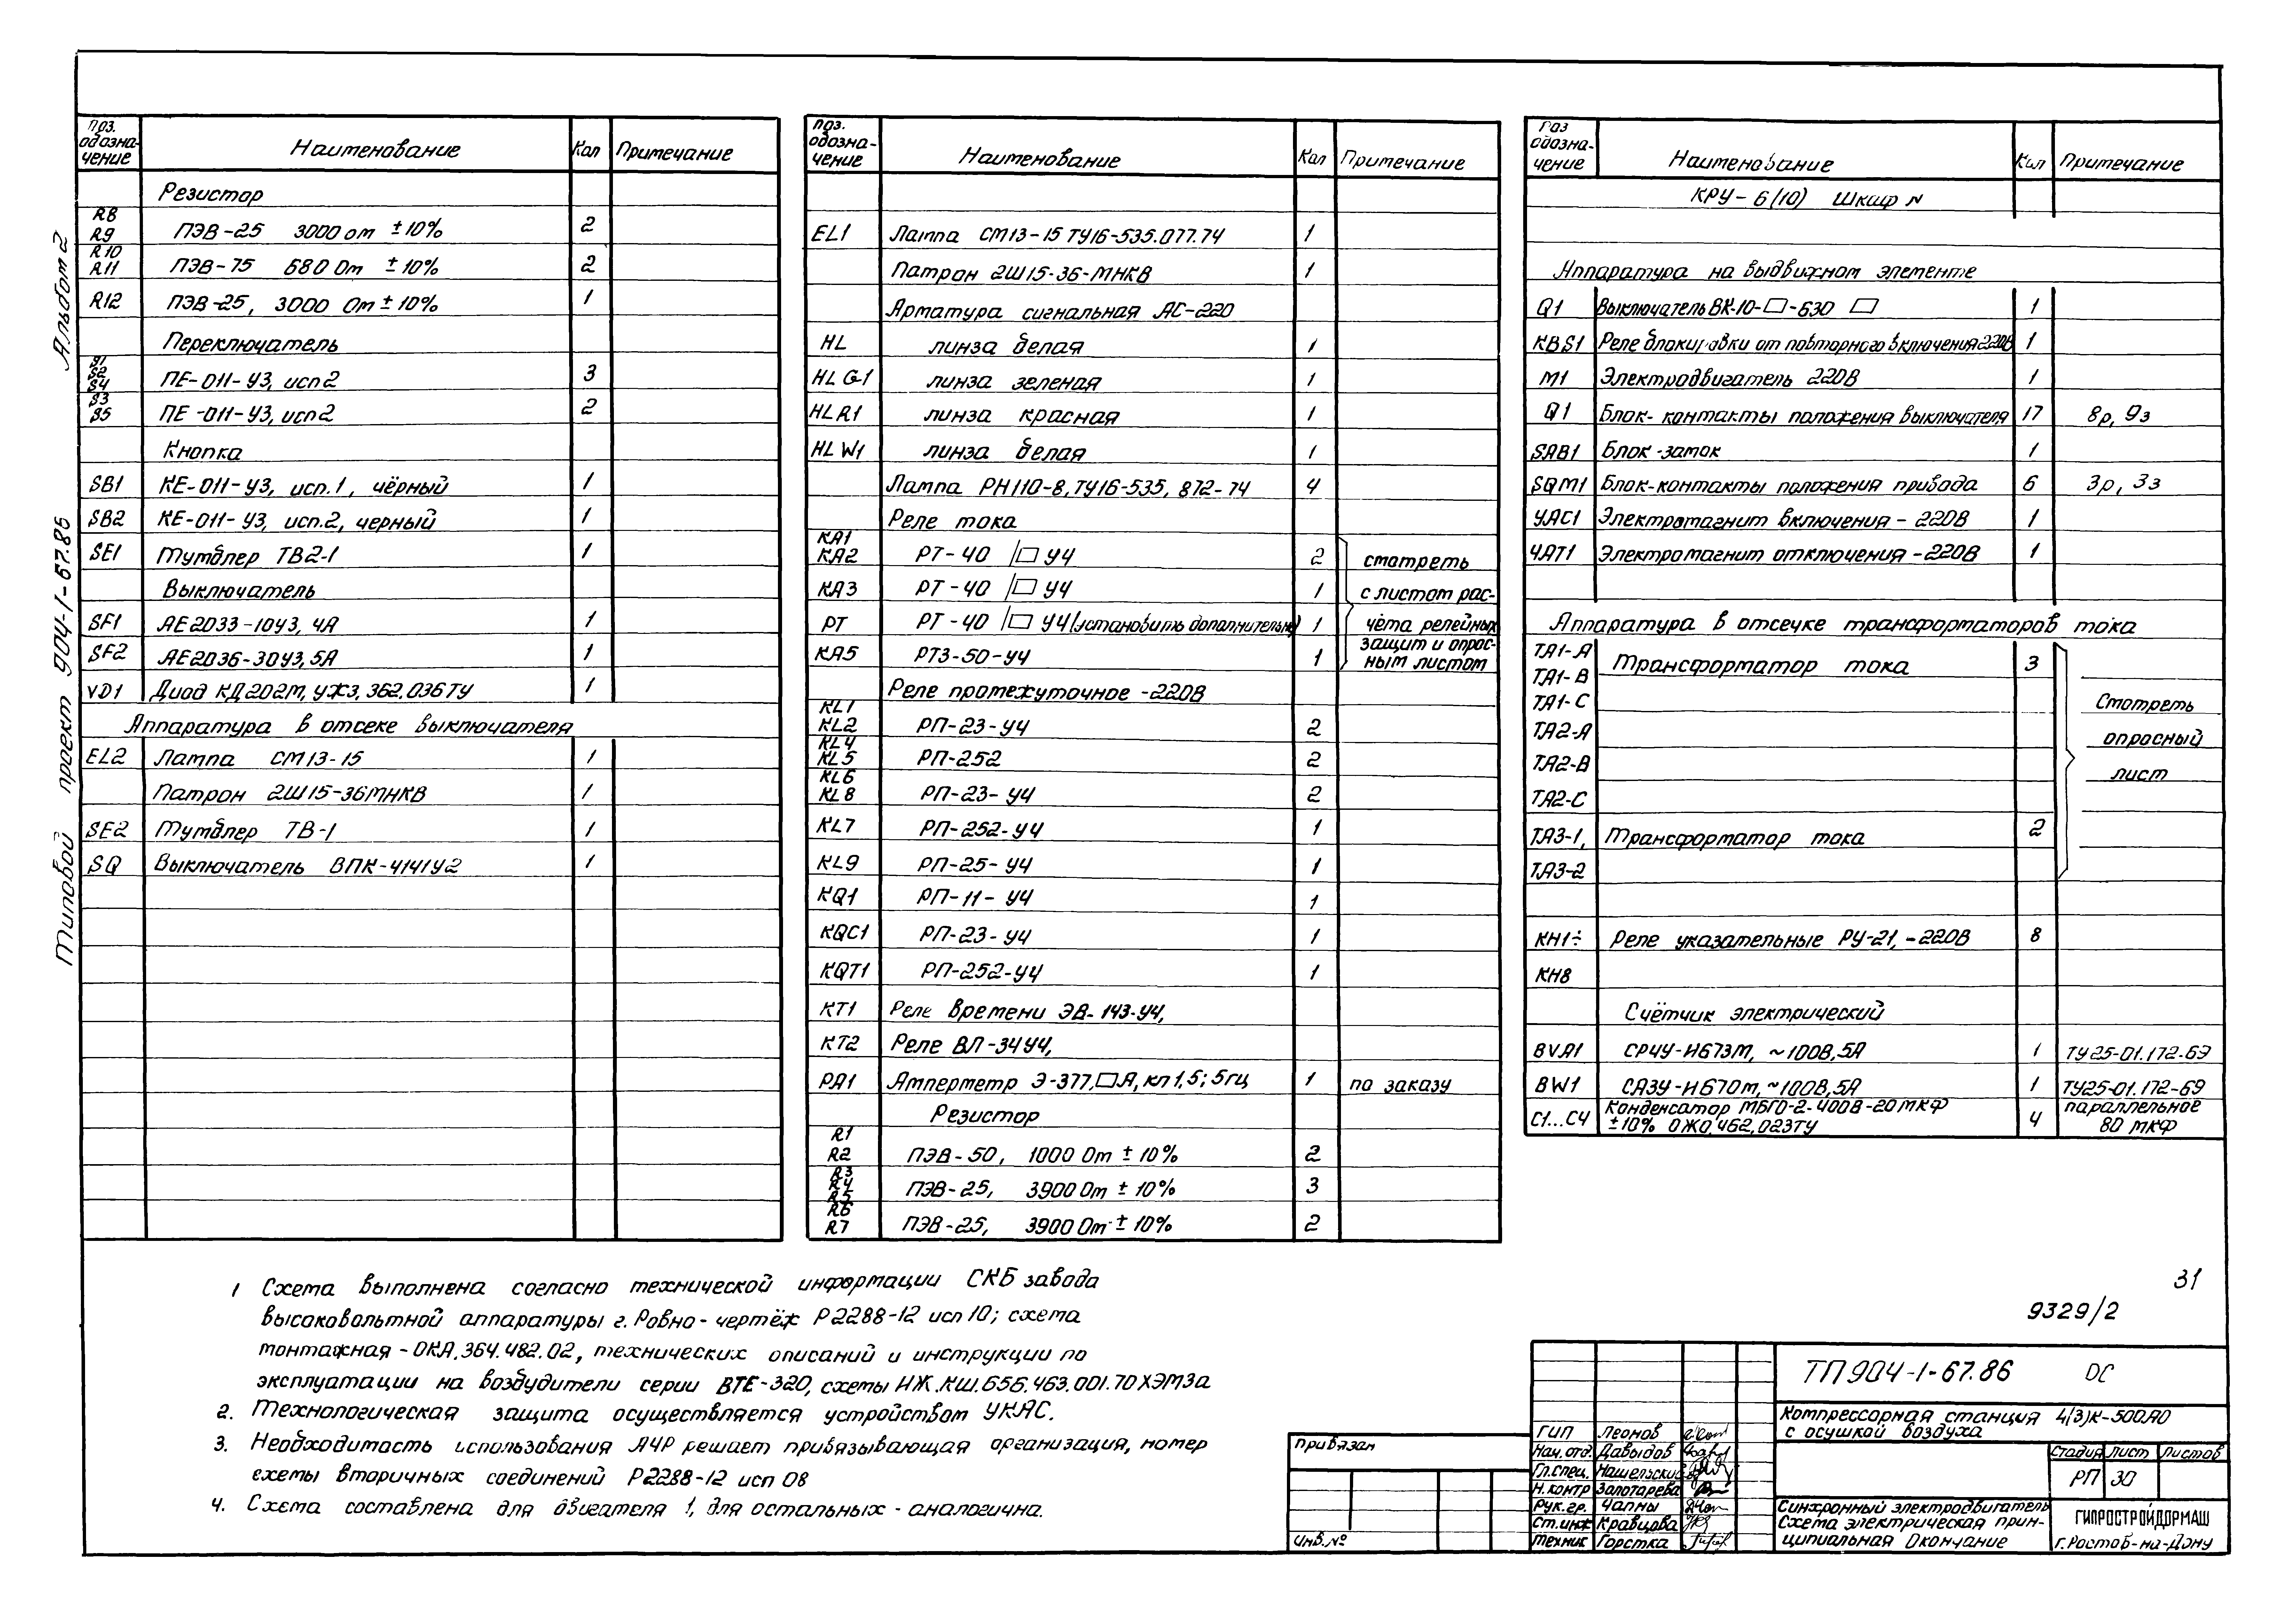 Альбом 2
Типовой проект 904-1-67.86
Поз. обозна- чение Наименование Кол Примечание
Резистор
R8 R9 ПЭВ-25 3000 ом ±10% 2
R10 R11 ПЭВ-75 680 Ом ±10% 2
R12 ПЭВ-25, 3000 Ом ±10% 1
Переключатель
S1 S2 S4 ПЕ-011-У3, исп2 3
S3 S5 ПЕ-011-У3, исп2 2
Кнопка
SB1 КЕ-011-У3, исп.1, чёрный 1
SB2 КЕ-011-У3, исп.2, черный 1
SE1 Тумблер ТВ2-1 1
Выключатель
SF1 АЕ2033-10У3, 4А 1
SF2 АЕ2036-30У3, 5А 1
VD1 Диод КД202М, УЖ3.362.036ТУ 1
Аппаратура в отсеке выключателя
EL2 Лампа СМ13-15 1
Патрон 2Ш15-36МНКВ 1
SE2 Тумблер ТВ-1 1
SQ Выключатель ВПК-4141У2 1
Поз. обозна- чение Наименование Кол Примечание
EL1 Лампа СМ13-15 ТУ16-535.077.74 1
Патрон 2Ш15-36-МНКВ 1
Арматура сигнальная АС-220
HL линза белая 1
HLG1 линза зеленая 1
HLR1 линза красная 1
HLW1 линза белая 1
Лампа РН110-8, ТУ16-535, 872-74 4
Реле тока
KA1 KA2 РТ-40 /□ У4 2 смотреть
KA3 РТ-40 /□ У4 1 с листом рас-
РТ РТ-40 /□ У4 (установить дополнительно) 1 чёта релейных
KA5 РТЗ-50-У4 1 защит и опрос- ным листом
Реле промежуточное -220В
KL1 KL2 РП-23-У4 2
KL4 KL5 РП-252 2
KL6 KL8 РП-23-У4 2
KL7 РП-252-У4 1
KL9 РП-25-У4 1
KQ1 РП-11-У4 1
KQC1 РП-23-У4 1
KQT1 РП-252-У4 1
KT1 Реле времени ЭВ-143-У4,
KT2 Реле ВЛ-34У4,
PA1 Амперметр Э-377, □А, кл1,5; 5гц 1 по заказу
Резистор
R1 R2 ПЭВ-50, 1000 Ом ±10% 2
R3 R4 R5 ПЭВ-25, 3900 Ом ±10% 3
R6 R7 ПЭВ-25, 3900 Ом ±10% 2
Поз обозна- чение Наименование Кол Примечание
КРУ-6(10) Шкаф N
Аппаратура на выдвижном элементе
Q1 Выключатель ВК-10-□-630 □ 1
KBS1 Реле блокировки от повторного включения 220В 1
M1 Электродвигатель 220В 1
Q1 Блок-контакты положения выключателя 17 8р, 9з
SAB1 Блок-замок 1
SQM1 Блок-контакты положения привода 6 3р, 3з
YAC1 Электромагнит включения - 220В 1
YAT1 Электромагнит отключения - 220В 1
Аппаратура в отсечке трансформаторов тока
TA1-A Трансформатор тока 3
TA1-B
TA1-C Смотреть
TA2-A опросный
TA2-B лист
TA2-C
TA3-1, Трансформатор тока 2
TA3-2
KH1÷ Реле указательные РУ-21, -220В 8
KH8
Счётчик электрический
BVA1 СР4У-И673М, ~100В, 5А 1 ТУ25-01.172-69
BW1 СА3У-И670м, ~100В, 5А 1 ТУ25-01.172-69
C1...C4 Конденсатор МБГО-2-400В-20МКФ ±10% ОЖ0.462.023ТУ 4 параллельное 80 мкф
1 Схема выполнена согласно технической информации СКБ завода
высоковольтной аппаратуры г. Ровно - чертёж Р2288-12 исп 10; схема
монтажная - ОКА.364.482.02, технических описаний и инструкции по
эксплуатации на возбудители серии ВТЕ-320, схемы ИЖ.КШ.656.463.001.70 ХЭМЗа
2. Технологическая защита осуществляется устройством УКАС.
3. Необходимость использования АЧР решает привязывающая организация, номер
схемы вторичных соединений Р2288-12 исп 08
4. Схема составлена для двигателя 1, для остальных - аналогична.
31
9329/2
Привязан
Инв.№
ТП 904-1-67.86 ОС
Компрессорная станция 4(3)К-500АО
с осушкой воздуха
ГИП Леонов
Нач.отд. Давыдов
Гл.спец. Нашельский
Н.контр Золотарева
Рук.гр. Чапны
Ст.инж Кравцова
Техник Горстка
Стадия Лист Листов
РП 30
Синхронный электродвигатель
Схема электрическая прин-
ципиальная Окончание
ГИПРОСТРОЙДОРМАШ
г.Ростов-на-Дону